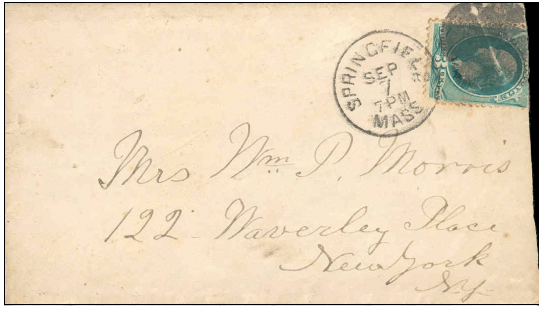 SPRINGFIELD
SEP
7
7PM
MASS
Mrs Wm P. Morris
122 Waverley Place
New York
NY